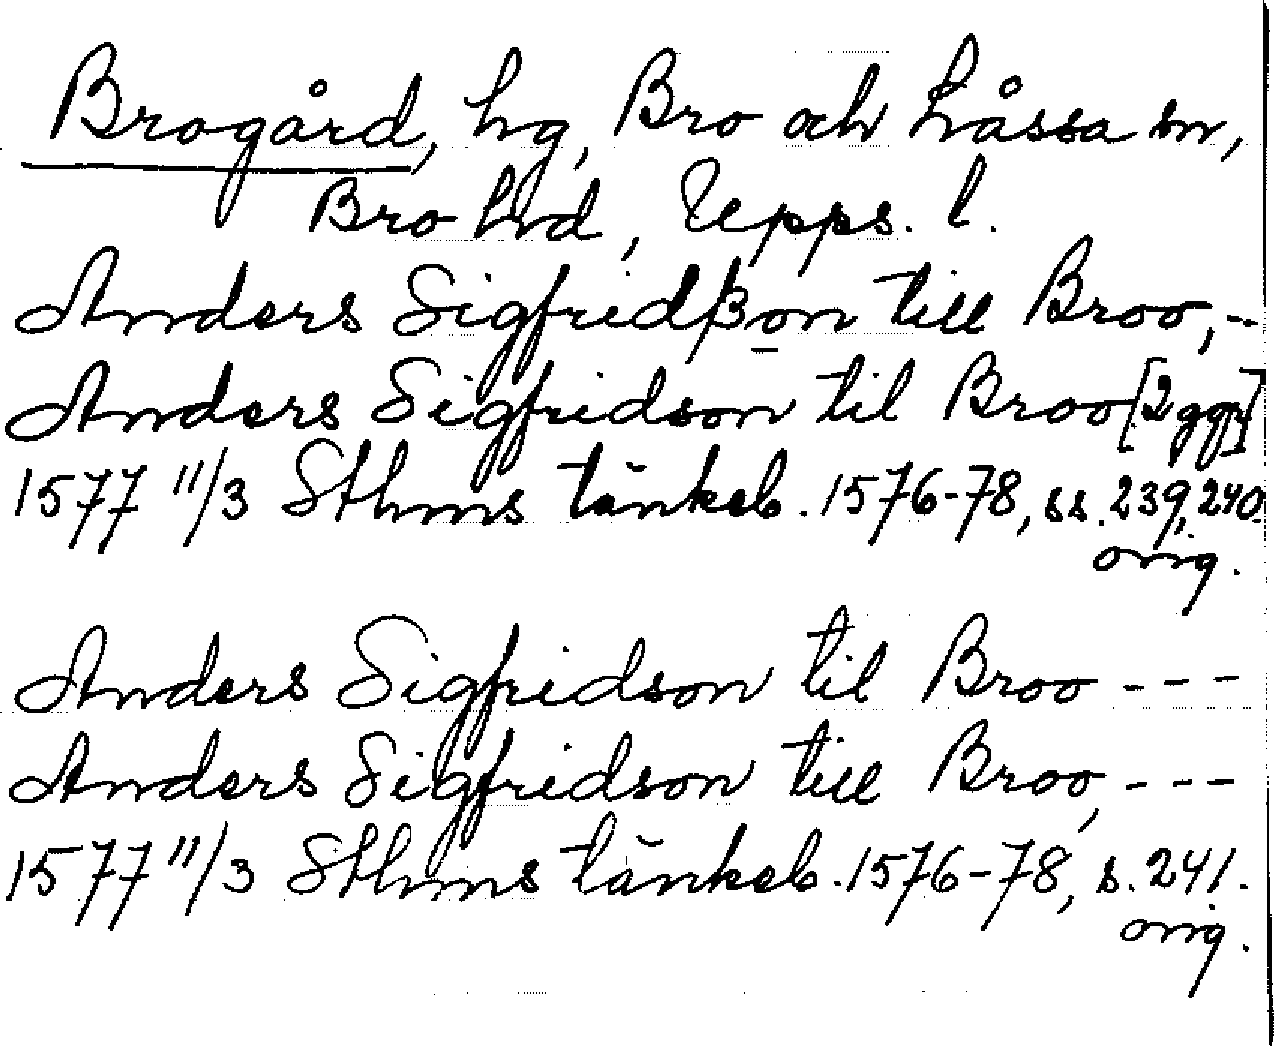 Brogård, hg, Bro och Låssa sn,
Bro hrd, Upps. l.
Anders Sigfridßon till Broo, --
Anders Sigfridson til Broo [2 ggr]
1577 11/3 Sthms tänkeb. 1576-78, ss. 239, 240.
orig.
Anders Sigfridson til Broo ---
Anders Sigfridson till Broo, ---
1577 11/3 Sthms tänkeb. 1576-78, s. 241.
orig.